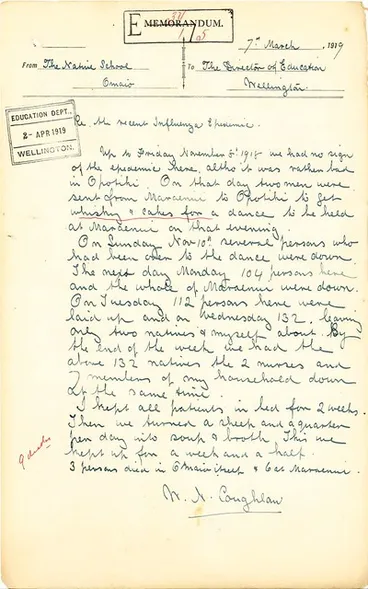 E 37/1/05
MEMORANDUM.
7th March, 1919
From The Native School
Omaio
To The Director of Education
Wellington.
EDUCATION DEPT.,
2 - APR 1919
WELLINGTON.
Re the recent Influenza Epidemic.
Up to Friday November 8th 1918 we had no sign
of the epidemic here, altho it was rather bad
in Opotiki. On that day two men were
sent from Maraenui to Opotiki to get
whisky & cakes for a dance to be held
at Maraenui on that evening.
On Sunday Nov 10th several persons who
had been over to the dance were down.
The next day Monday 104 persons here
and the whole of Maraenui were down.
On Tuesday 112 persons here were
laid up and on Wednesday 132, leaving
only two natives & myself about. By
the end of the week we had the
above 132 natives the 2 nurses and
7 members of my household down
at the same time.
I kept all patients in bed for 2 weeks.
Then we turned a sheep and a quarter
per day into soup & broth. This we
kept up for a week and a half.
3 persons died in Omaio & 6 at Maraenui.
9 deaths
W. N. Coughlan